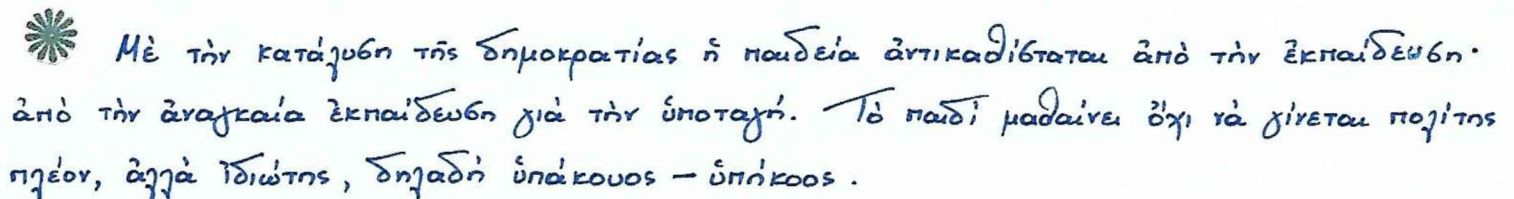 Μὲ τὴν κατάλυση τῆς δημοκρατίας ἡ παιδεία ἀντικαθίσταται ἀπὸ τὴν ἐκπαίδευση·
ἀπὸ τὴν ἀναγκαία ἐκπαίδευση γιὰ τὴν ὑποταγή. Τὸ παιδί μαθαίνει ὄχι νὰ γίνεται πολίτης
πλέον, ἀλλὰ ἰδιώτης, δηλαδή ὑπάκουος – ὑπήκοος.